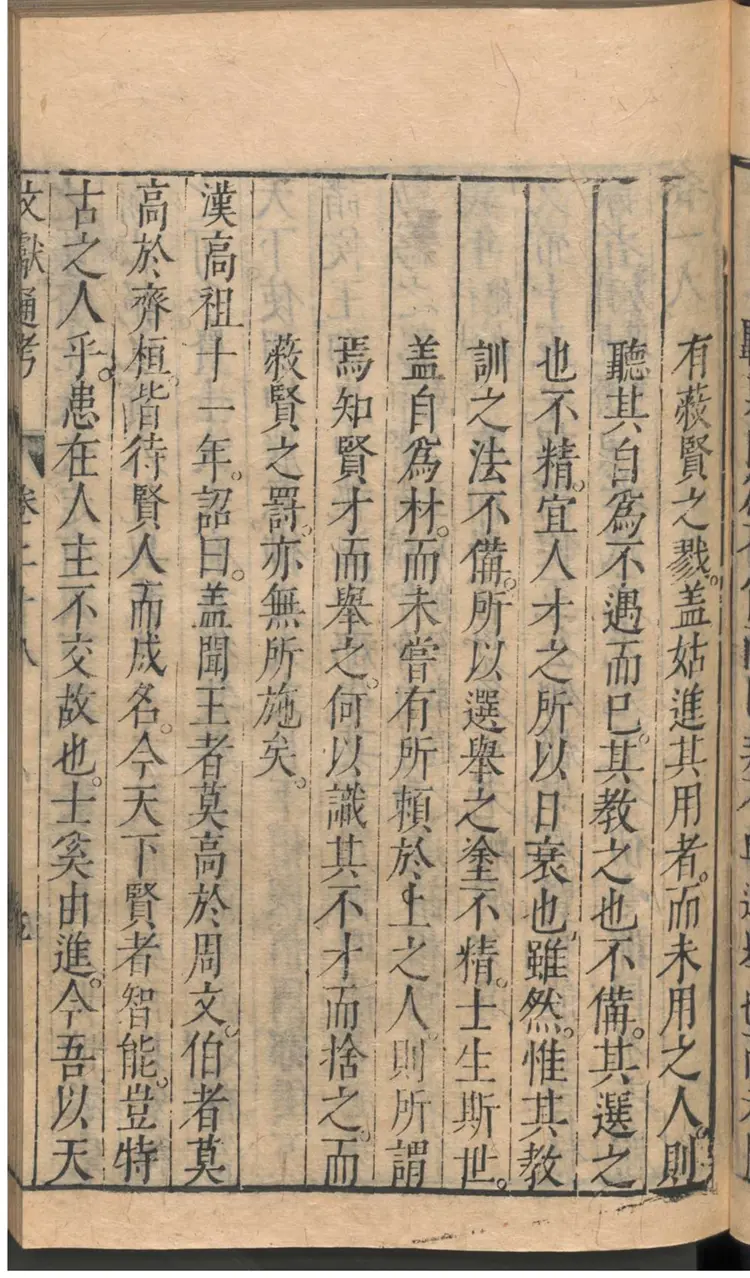 有蔽賢之戮。盖姑進其用者。而未用之人。則
聽其自爲不遇而已。其教之也不備。其選之
也不精。宜人才之所以日衰也。雖然。惟其教
訓之法不備。所以選舉之塗不精。士生斯世。
盖自爲材。而未嘗有所頼於上之人。則所謂
焉知賢才而舉之。何以識其不才而捨之。而
蔽賢之罰。亦無所施矣。
漢高祖十一年。詔曰。盖聞王者莫高於周文。伯者莫
高於齊桓。皆待賢人而成名。今天下賢者智能。豈特
古之人乎。患在人主不交故也。士奚由進。今吾以天
文獻通考 卷二十八